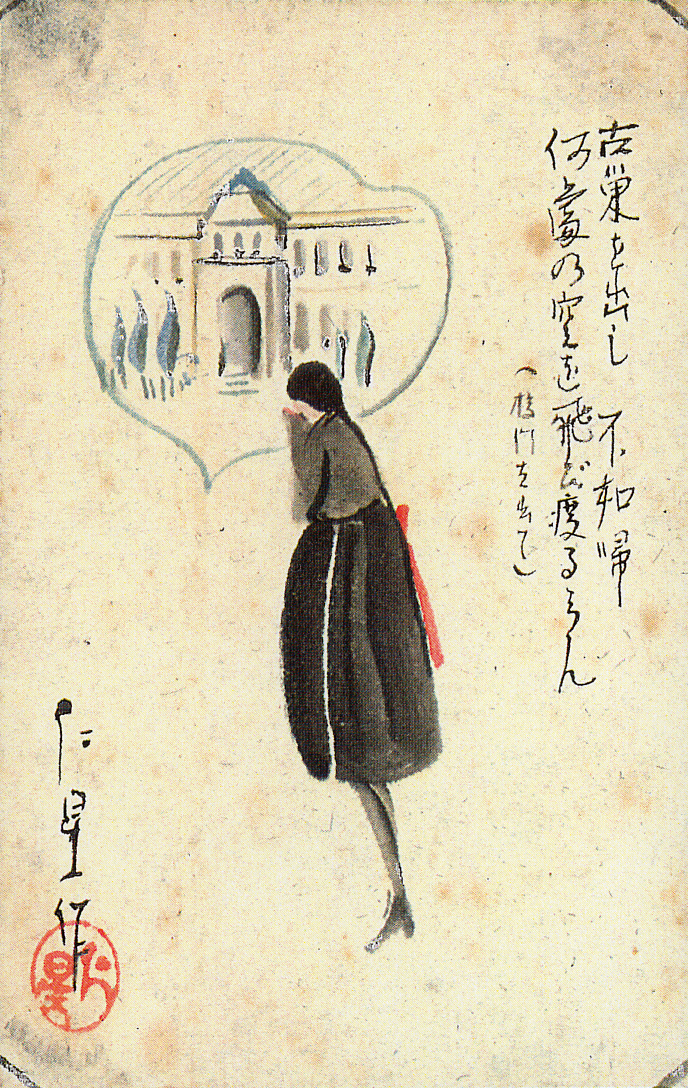 古巣を出し 不如帰
何處の空を飛び疲るらん
(校門を出て)
仁星作